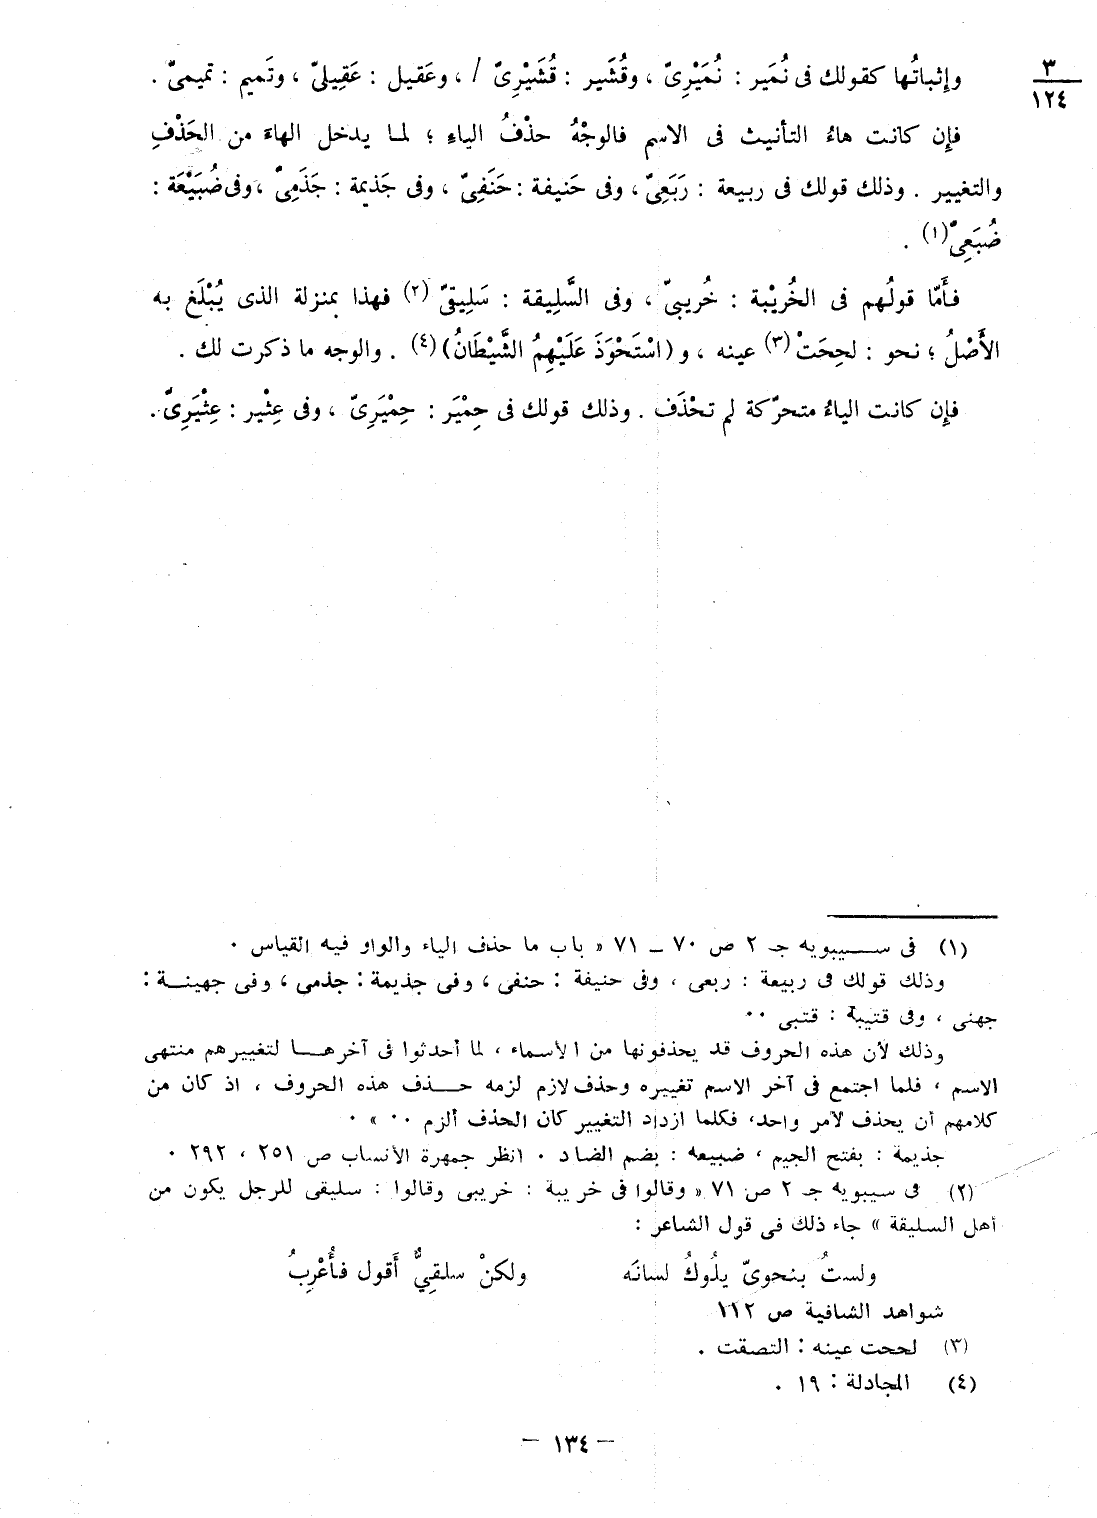 ٣
١٢٤
وإثباتُها كقولك فى نُمَير : نُمَيْرِىّ ، وقُشَير : قُشَيْرِىّ / ، وعَقيل : عَقِيلىّ ، وتَميم : تميمىّ .
فإِن كانت هاءُ التأنيث فى الاسم فالوجْهُ حذْفُ الياءِ ؛ لما يدخل الهاءَ من الحَذْفِ
والتغيير . وذلك قولك فى ربيعة : رَبَعِىّ ، وفى حَنيفة : حَنَفِىّ ، وفى جَذيمة : جَذَمِىّ ، وفى ضُبَيْعَة :
ضُبَعِىّ (١) .
فأَمّا قولُهم فى الخُرَيْبة : خُرَيبىّ ، وفى السَّلِيقة : سَلِيقىّ (٢) فهذا بمنزلة الذى يُبْلَغ به
الأَصْلُ ؛ نحو : لحِحَتْ (٣) عينه ، و (اسْتَحْوَذَ عَلَيْهِمُ الشَّيْطَانُ) (٤) . والوجه ما ذكرت لك .
فإِن كانت الياءُ متحرّكة لم تحْذَف . وذلك قولك فى حِمْيَر : حِمْيَرِىّ ، وفى عِثْير : عِثْيَرِىّ .
(١) فى سـيبويه جـ ٢ ص ٧٠ ــ ٧١ « باب ما حذف الياء والواو فيه القياس .
وذلك قولك فى ربيعة : ربعى ، وفى حنيفة : حنفى ، وفى جذيمة : جذمى ، وفى جهينـة :
جهنى ، وفى قتيبة : قتبى ..
وذلك لأن هذه الحروف قد يحذفونها من الأسماء ، لما أحدثوا فى آخرهـا لتغييرهم منتهى
الاسم ، فلما اجتمع فى آخر الاسم تغييره وحذف لازم لزمه حـذف هذه الحروف ، اذ كان من
كلامهم أن يحذف لأمر واحد، فكلما ازداد التغيير كان الحذف ألزم .. » .
جذيمة : بفتح الجيم ، ضبيعه : بضم الضاد . انظر جمهرة الأنساب ص ٢٥١ ، ٢٩٢ .
(٢) فى سيبويه جـ ٢ ص ٧١ « وقالوا فى خريبة : خريبى وقالوا : سليقى للرجل يكون من
أهل السليقة » جاء ذلك فى قول الشاعر :
ولستُ بنحوىّ يلُوكُ لسانَه ولكنْ سلقِىٌّ أَقول فأُعْرِبُ
شواهد الشافية ص ١١٢
(٣) لححت عينه : التصقت .
(٤) المجادلة : ١٩ .
— ١٣٤ —